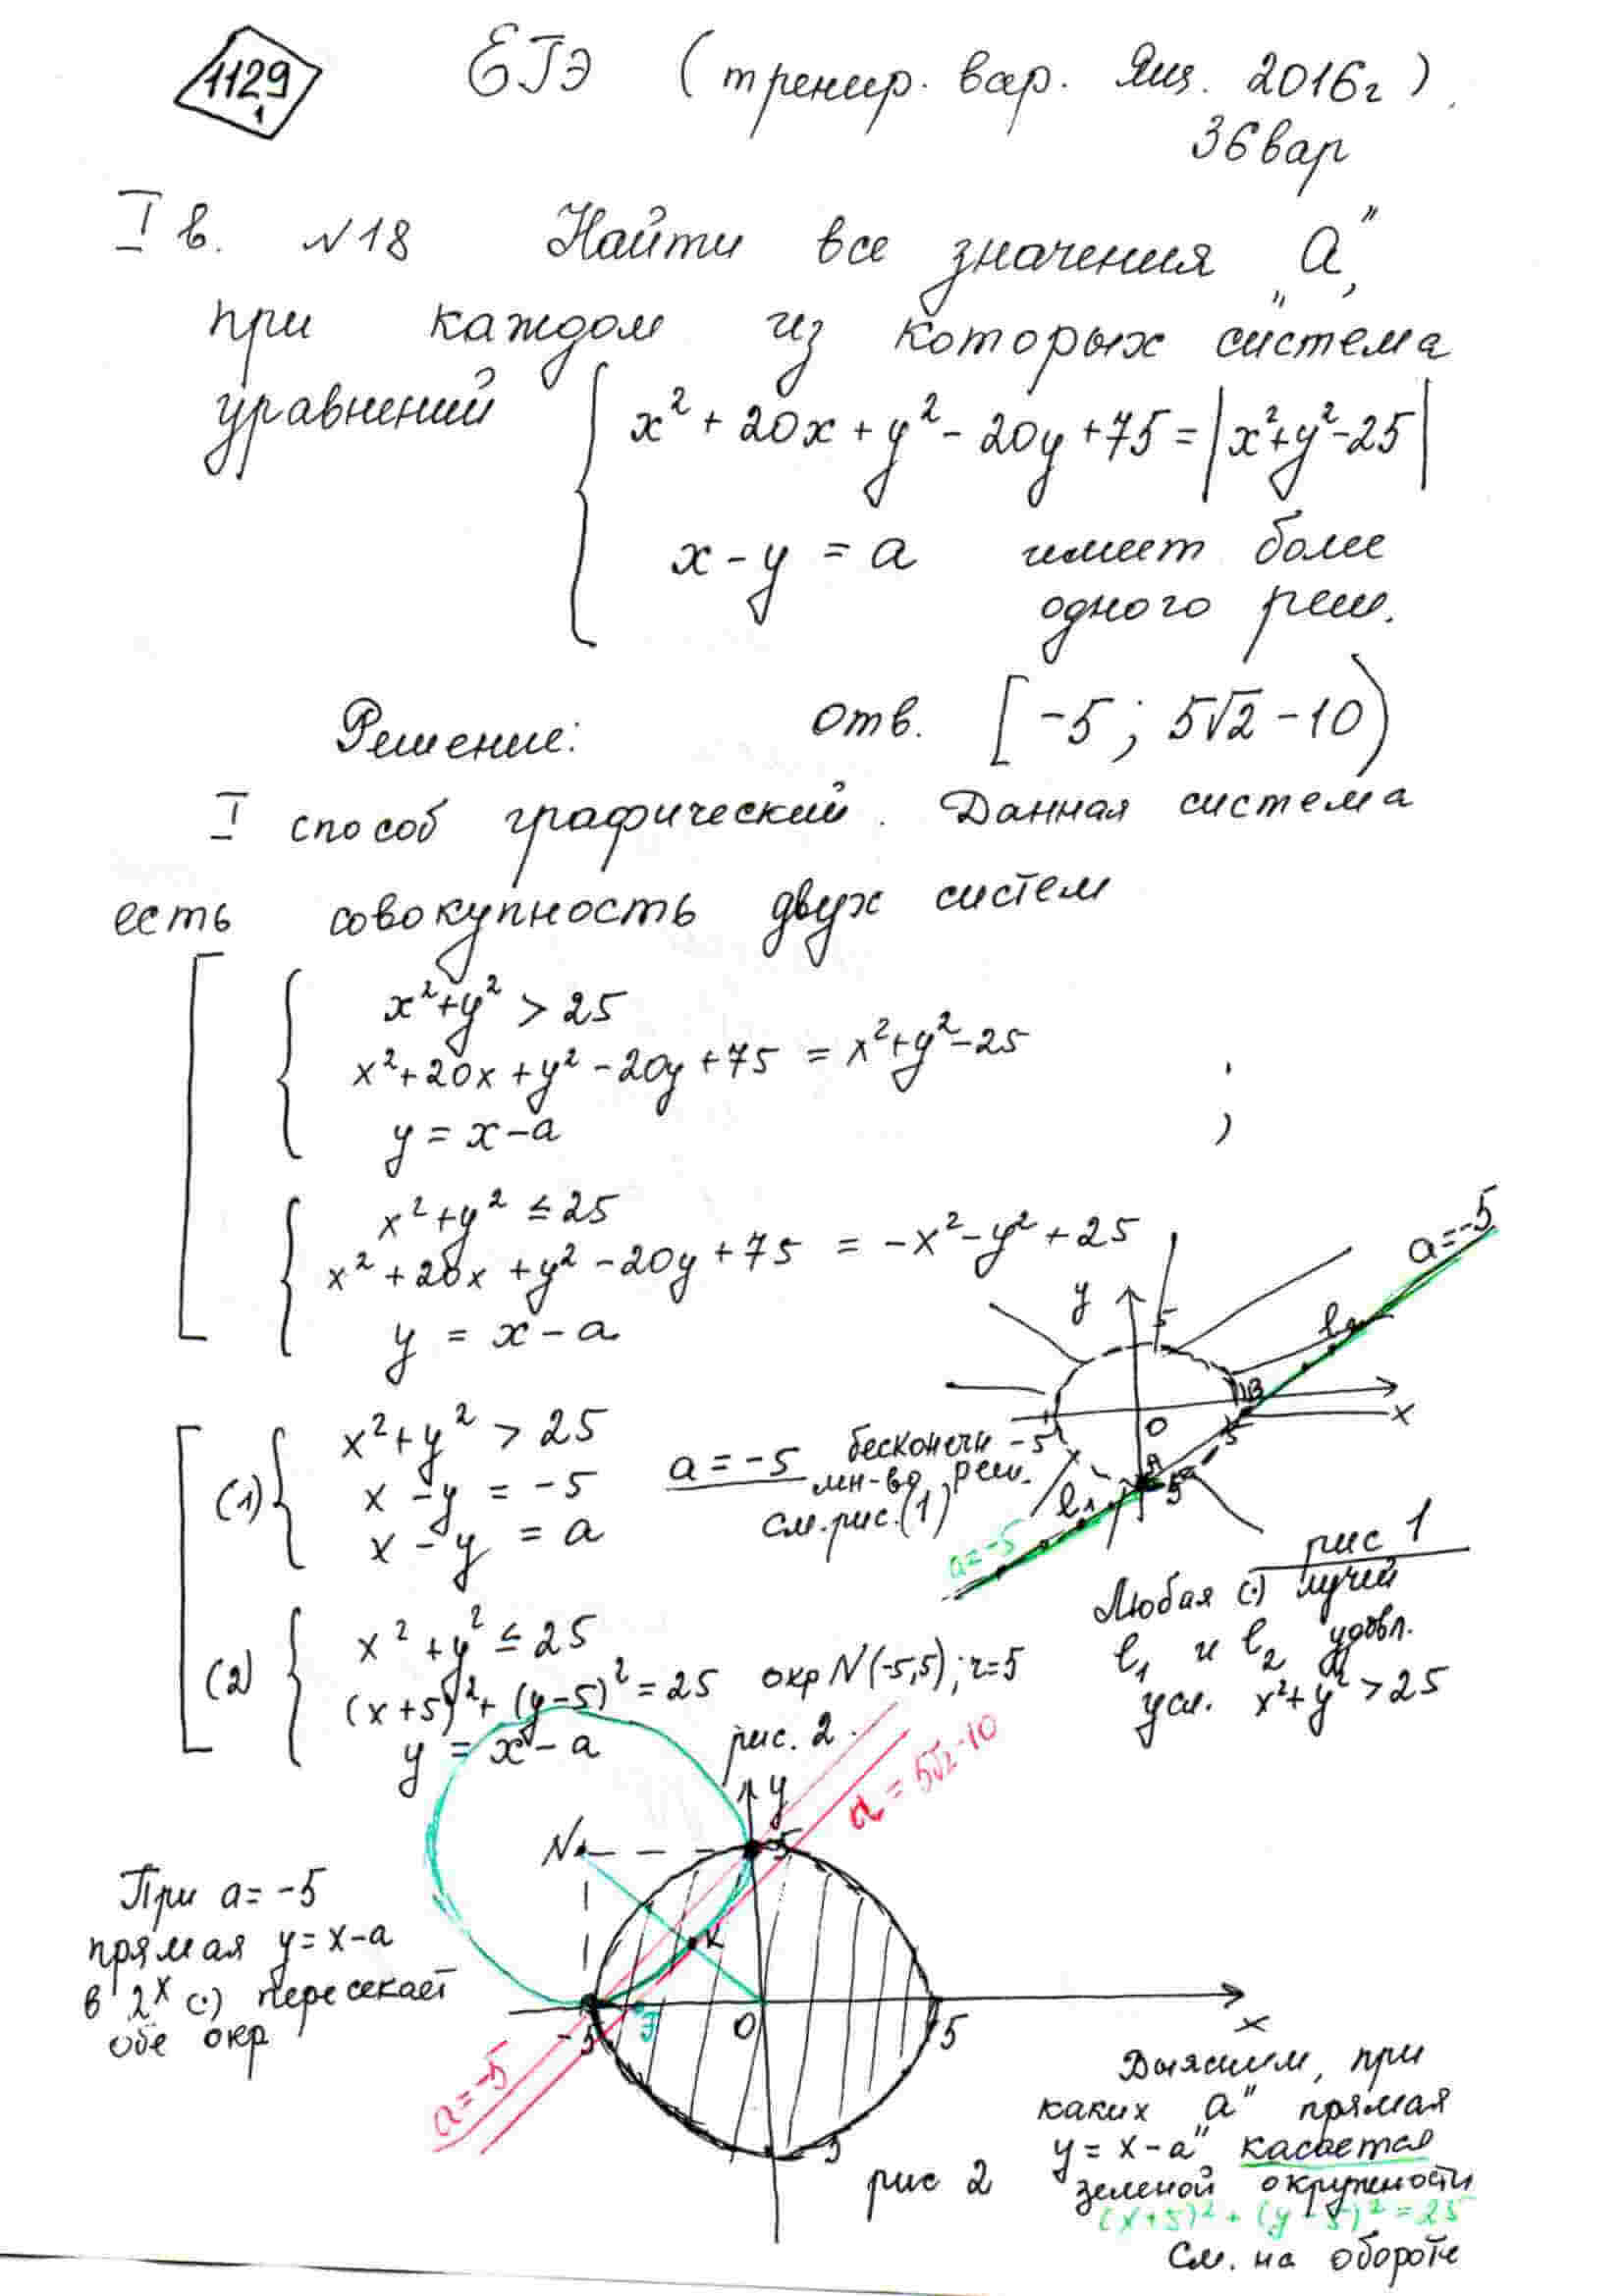 1129
1
ЕГЭ (тренир. вар. Ящ. 2016г)
36 вар
I в. №18 Найти все значения "а",
при каждом из которых система
уравнений
x² + 20x + y² - 20y + 75 = |x² + y² - 25|
x - y = a имеет более
одного реш.
Решение: отв. [-5; 5√2 - 10)
I способ графический. Данная система
есть совокупность двух систем
x² + y² > 25
x² + 20x + y² - 20y + 75 = x² + y² - 25
y = x - a ;
x² + y² ≤ 25
x² + 20x + y² - 20y + 75 = -x² - y² + 25
y = x - a
(1) x² + y² > 25
x - y = -5
x - y = a
a = -5 бесконечн
мн-во реш.
см. рис. (1)
y 5 l₂ a = -5
B x
-5 O 5
A -5 l₁
a = -5
рис 1
Любая (·) лучей
l₁ и l₂ удовл.
усл. x² + y² > 25
(2) x² + y² ≤ 25
(x+5)² + (y-5)² = 25 окр N(-5,5); r=5
y = x - a
рис. 2.
a = 5√2 - 10
N y 5
K
-5 O 5 x
a = -5
При a = -5
прямая y = x - a
в 2х (·) пересекает
обе окр
рис 2
Выясним, при
каких "а" прямая
y = x - a" касается
зеленой окружности
(x+5)² + (y-5)² = 25
См. на обороте